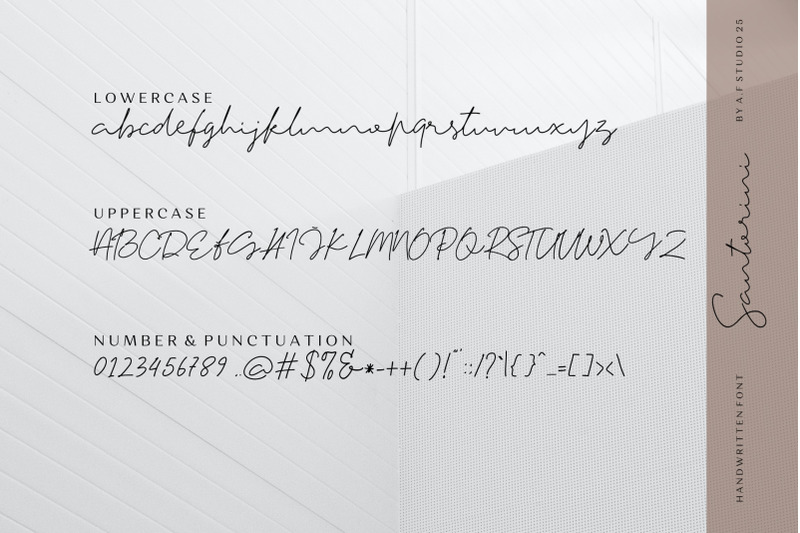 LOWERCASE
abcdefghijklmnopqrstuvwxyz
UPPERCASE
ABCDEFGHIJKLMNOPQRSTUVWXYZ
NUMBER & PUNCTUATION
0123456789 .,@#$%&*-++( )!"' :;/?`|{ }^_=[ ]><\
BY A.F STUDIO 25
Santorini
HANDWRITTEN FONT